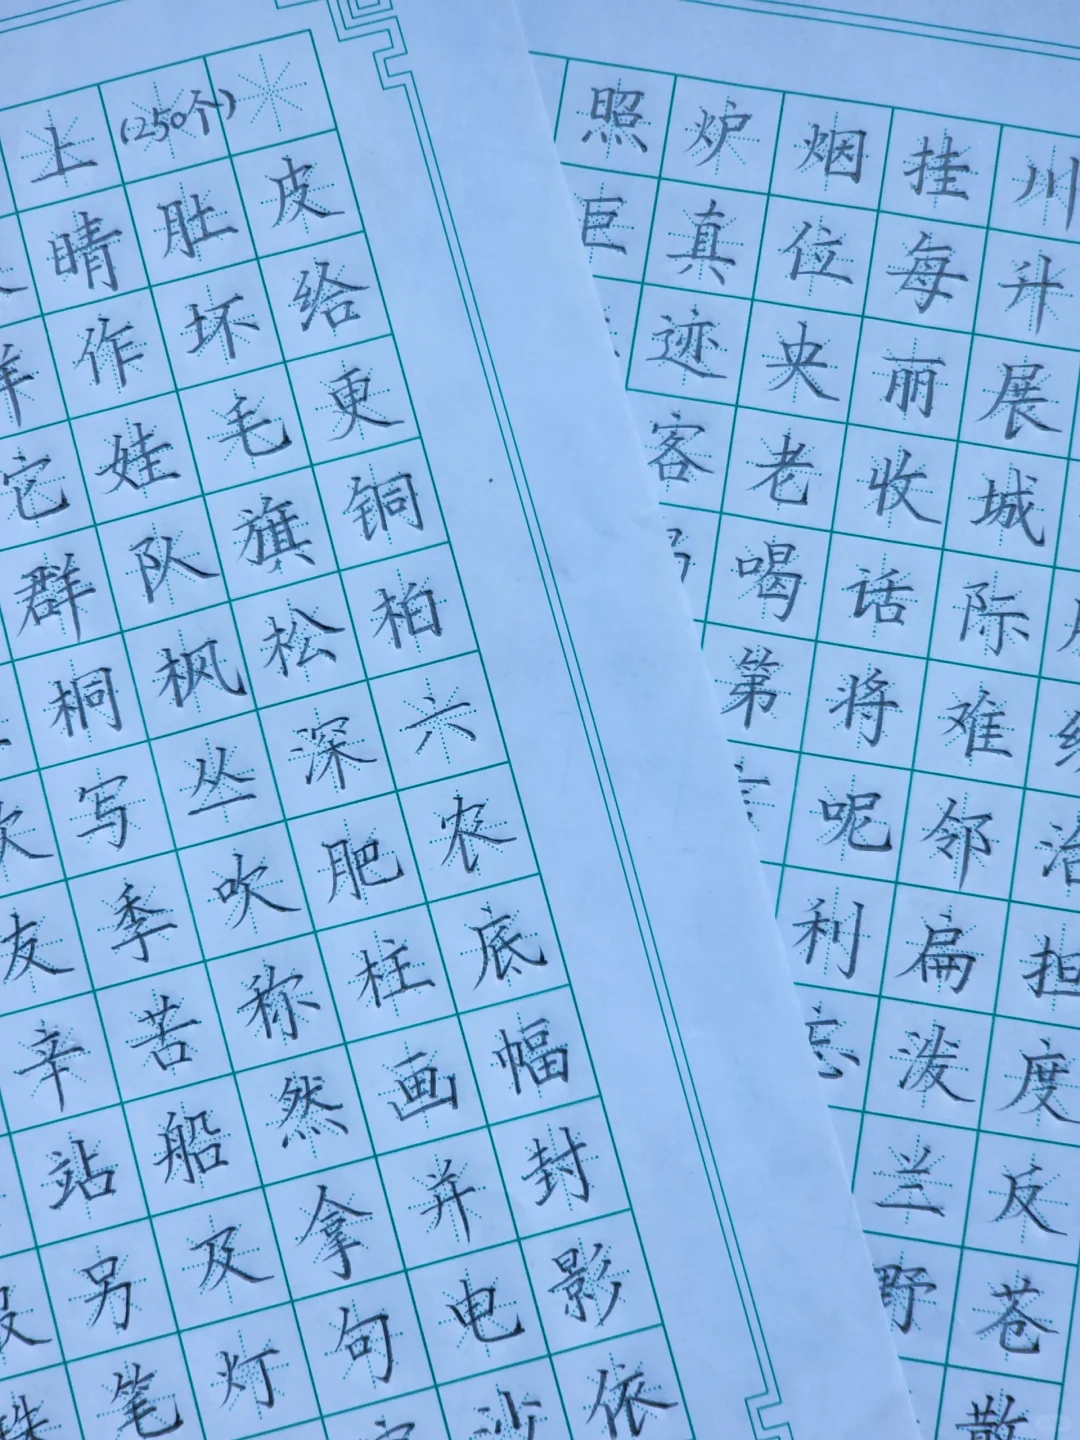 上(250个)
晴肚皮
作坏给
它娃毛更
群队旗铜
桐枫松柏
写丛深六
友季吹肥农
辛苦称柱底
站船然画幅
另及拿并封
笔灯句电影
依
照炉烟挂川
巨真位每升
迹央丽展
客老收城
喝话际
第将难
呢邻治
利扁担
忘泼度
兰反
野苍
散